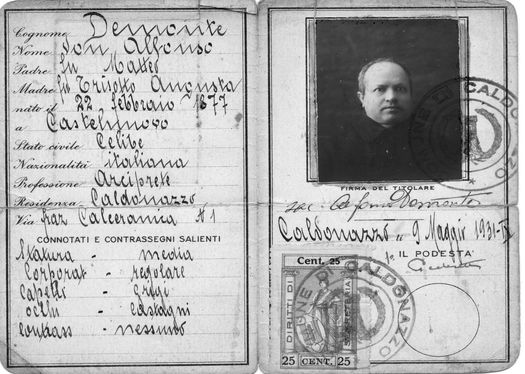 Cognome Demonte
Nome Don Alfonso
Padre fu Matteo
Madre fu Trisotto Augusta
nato il 22 febbraio 1877
a Castelnuovo
Stato civile Celibe
Nazionalità italiana
Professione Arciprete
Residenza Caldonazzo
Via fraz Calceranica N 1
CONNOTATI E CONTRASSEGNI SALIENTI
Statura - media
Corporat - regolare
Capelli - grigi
occhi - castagni
contrass - nessuno
COMUNE DI CALDONAZZO
FIRMA DEL TITOLARE
Alfonso Demonte
Caldonazzo li 9 Maggio 1931-IX
IL PODESTA'
Cent. 25
DIRITTI DI
SEGRETERIA
25 CENT. 25
COMUNE DI CALDONAZZO